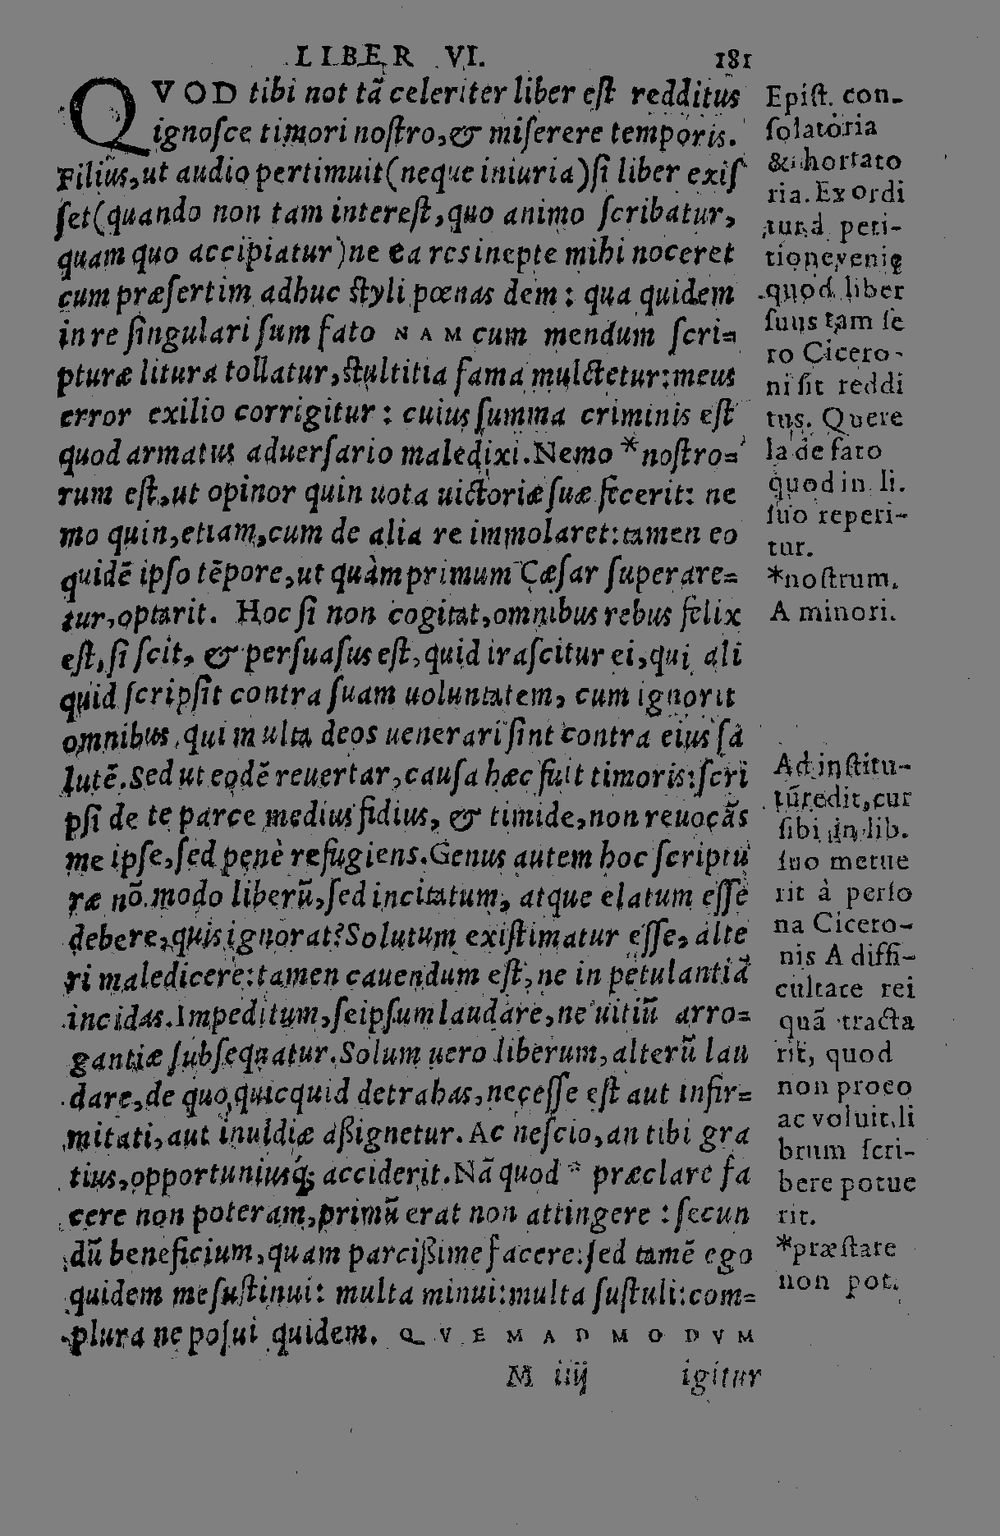 LIBER VI. 181
QVOD tibi not tã celeriter liber eſt redditus
ignoſce timori noſtro,& miſerere temporis.
Filius,ut audio pertimuit(neque iniuria)ſi liber exiſ
ſet(quando non tam intereſt,quo animo ſcribatur,
quam quo accipiatur)ne ea res inepte mihi noceret
cum præſertim adhuc ſtyli pœnas dem: qua quidem
in re ſingulari ſum fato NAM cum mendum ſcri=
pturæ litura tollatur,ſtultitia fama mulctetur:meus
error exilio corrigitur: cuius ſumma criminis eſt
quod armatus aduerſario maledixi.Nemo *noſtro=
rum eſt,ut opinor quin uota uictoriæ ſuæ fecerit: ne
mo quin,etiam,cum de alia re immolaret:tamen eo
quidẽ ipſo tẽpore,ut quàm primum Cæſar ſuperare=
tur,optarit. Hoc ſi non cogitat,omnibus rebus felix
eſt,ſi ſcit, & perſuaſus eſt,quid iraſcitur ei,qui ali
quid ſcripſit contra ſuam uoluntatem, cum ignorit
omnibus,qui multa deos uenerari ſint contra eius ſa
lutẽ.Sed ut eodẽ reuertar,cauſa hæc fuit timoris:ſcri
pſi de te parce medius fidius, & timide,non reuocãs
me ipſe,ſed penè refugiens.Genus autem hoc ſcriptu
ræ nõ modo liberũ,ſed incitatum, atque elatum eſſe
debere,quis ignorat?Solutum exiſtimatur eſſe, alte
ri maledicere:tamen cauendum eſt,ne in petulantiã
incidas.Impeditum,ſeipſum laudare,ne uitiũ arro=
gantiæ ſubſequatur.Solum uero liberum,alterũ lau
dare,de quo,quicquid detrahas,neceſſe eſt aut infir=
mitati,aut inuidiæ aßignetur.Ac neſcio,an tibi gra
tius,opportuniusq; acciderit.Nã quod * præclare fa
cere non poteram,primũ erat non attingere :ſecun
dũ beneficium,quam parcißime facere:ſed tamẽ ego
quidem me ſuſtinui: multa minui:multa ſuſtuli:com=
plura ne poſui quidem. QVEMADMODVM
M iiij igitur
Epiſt. con-
ſolatoria
& hortato
ria.Ex ordi
tur à peti-
tione venię
quod liber
ſuus tam ſe
ro Cicero-
ni ſit reddi
tus. Quere
la de fato
quod in li.
ſuo reperi-
tur.
*noſtrum.
A minori.
Ad inſtitu-
tũ redit,cur
ſibi in lib.
ſuo metue
rit à perſo
na Cicero-
nis A diffi-
cultate rei
quã tracta
rit, quod
non proeo
ac voluit,li
brum ſcri-
bere potue
rit.
*præſtare
non pot.